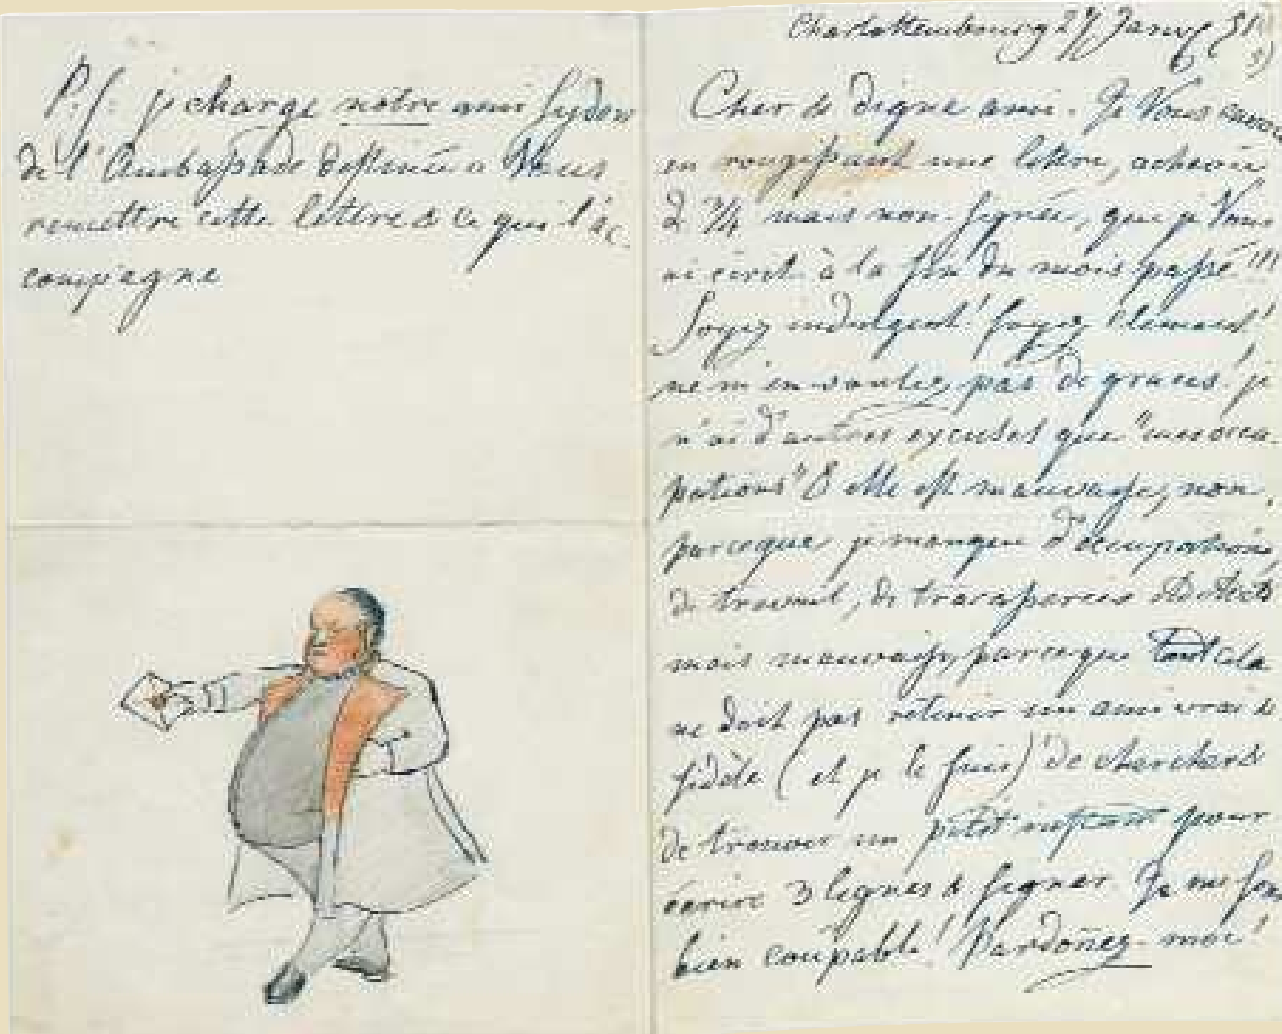 P.S. je charge notre ami Sydow
de l'Ambassade destinée a Vous
remettre cette lettre & ce qui l'ac-
compagne
Charlottembourg 27 Janv 51
Cher & digne ami. Je Vous envoie
en rougissant une lettre, achevée
à 3/4 mais non signée, que je Vous
ai écrit à la fin du mois passé!!!
Soyez indulgent! soyez clement!
ne m'en voulez pas de graces! je
n'ai d'autres excuses que "mes occu-
pations" & elle est mauvaise, non,
parceque je manque d'occupations,
de travail, de tracasseries
mais mauvaise, parceque tout cela
ne doit pas retenir un ami vrai &
fidèle (et je le suis) de chercher &
de trouver un petit instant pour
écrire 3 lignes & signer. Je me sens
bien coupable! Pardonez-moi!